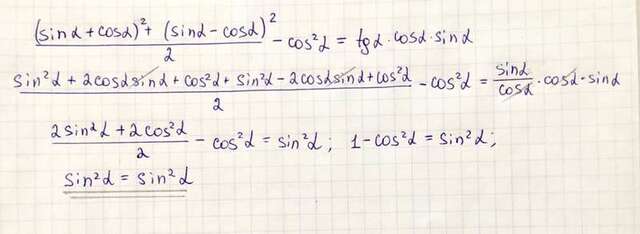 (sinα + cosα)² + (sinα - cosα)² / 2 - cos²α = tgα · cosα · sinα
sin²α + 2cosαsinα + cos²α + sin²α - 2cosαsinα + cos²α / 2 - cos²α = sinα / cosα · cosα · sinα
2sin²α + 2cos²α / 2 - cos²α = sin²α ; 1 - cos²α = sin²α ;
sin²α = sin²α